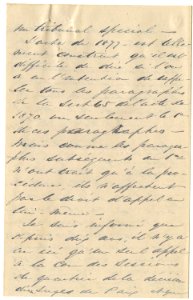 un tribunal spécial —
L'acte de 1877 est telle-
ment construit qu'il est
difficile de dire si l'on
a eu l'intention de rap-
peler tous les paragraphes
de la Sect 65 de l'acte de
1870 ou seulement le 1er
de ces paragraphes —
Mais comme les paragra-
phes subséquents au 1er
n'ont trait qu'à la pro-
cédure ils n'affectent
pas le droit d'appel en
lui-même —
Je suis informé que
depuis dix ans, il n'y a
eu qu'un seul appel
à la Cour des Sessions
de quartier de la décision
des Juges de Paix